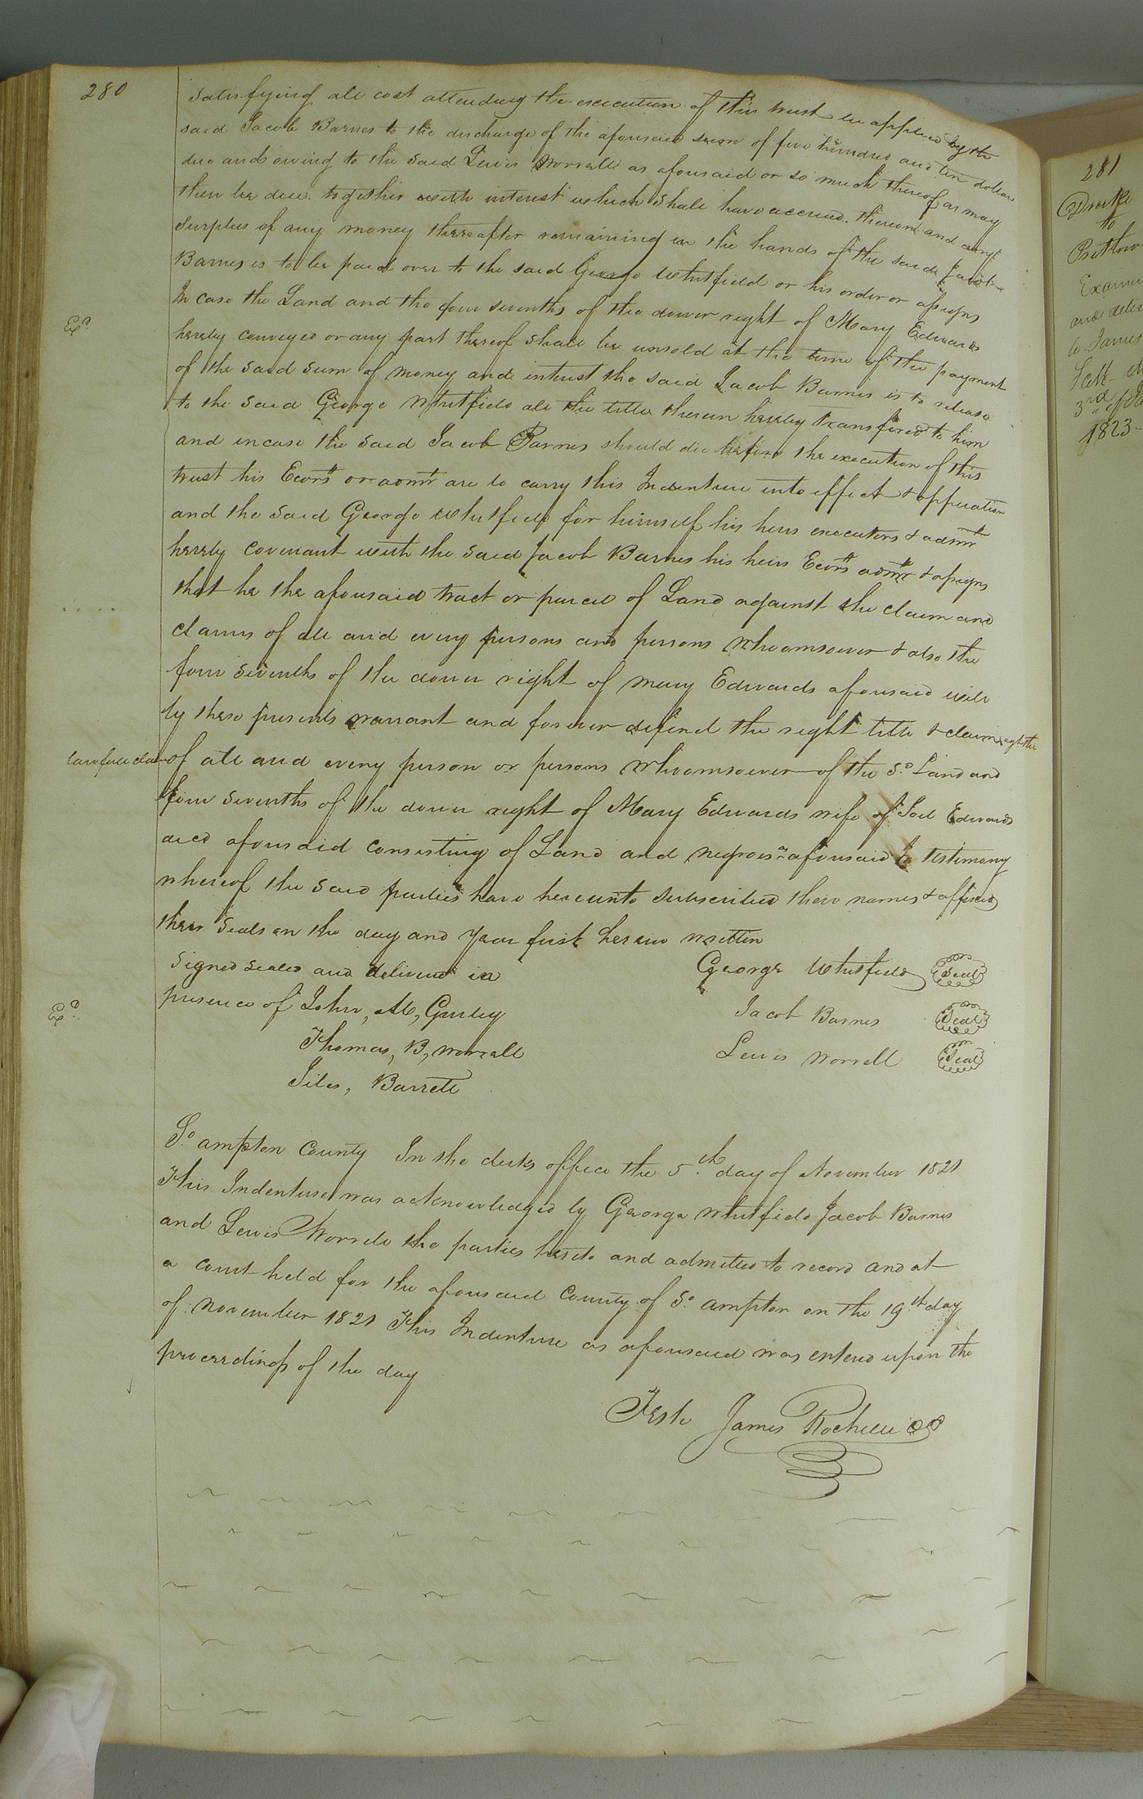 280
satisfying all cost attending the execution of this trust be applied by the
said Jacob Barnes to the discharge of the aforesaid sum of five hundred and ten dollars
due and owing to the said Lewis Worrell as aforesaid or so much thereof as may
then be due together with interest which shall have accrued thereon and any
surplus of any money thereafter remaining in the hands of the said Jacob
Barnes is to be paid over to the said George Whitfield or his order or assigns
In case the Land and the four sevenths of the dower right of Mary Edwards
hereby conveyed or any part thereof shall be unsold at the time of the payment
of the said sum of money and interest the said Jacob Barnes is to release
to the said George Whitfield all the title therein hereby transfered to him
and in case the said Jacob Barnes should die before the execution of this
trust his Ecors or admr are to carry this Indenture into effect & opperation
and the said George Whitfield for himself his heirs executors & admr
hereby covenant with the said Jacob Barnes his heirs Ecors admr & assigns
that he the aforesaid tract or parcel of Land against the claim and
claims of all and every persons and persons whomsoever & also the
four sevenths of the dower right of Mary Edwards aforesaid will
by these presents warrant and forever defend the right title & claim
of all and every person or persons whomsoever of the So Land and
four sevenths of the dower right of Mary Edwards wife of Joel Edwards
decd aforesaid consisting of Land and negroes aforesaid In testimony
whereof the said parties have hereunto subscribed there names & affixed
there seals on the day and year first herein written
Signed sealed and delivered in
presence of John, M, Gurley
Thomas, B, Worrell
Jiles, Barrett
George Whitfield Seal
Jacob Barnes Seal
Lewis Worrell Seal
So ampton County In the clerks office the 5th day of November 1821
This Indenture was acknowledged by George Whitfield Jacob Barnes
and Lewis Worrell the parties hereto and admitted to record and at
a court held for the aforesaid County of So ampton on the 19th day
of November 1821 This Indenture as aforesaid was entered upon the
proceedings of the day
Teste James Rochelle
281
Drake
to
Examined
and deli
to James
3rd
1823